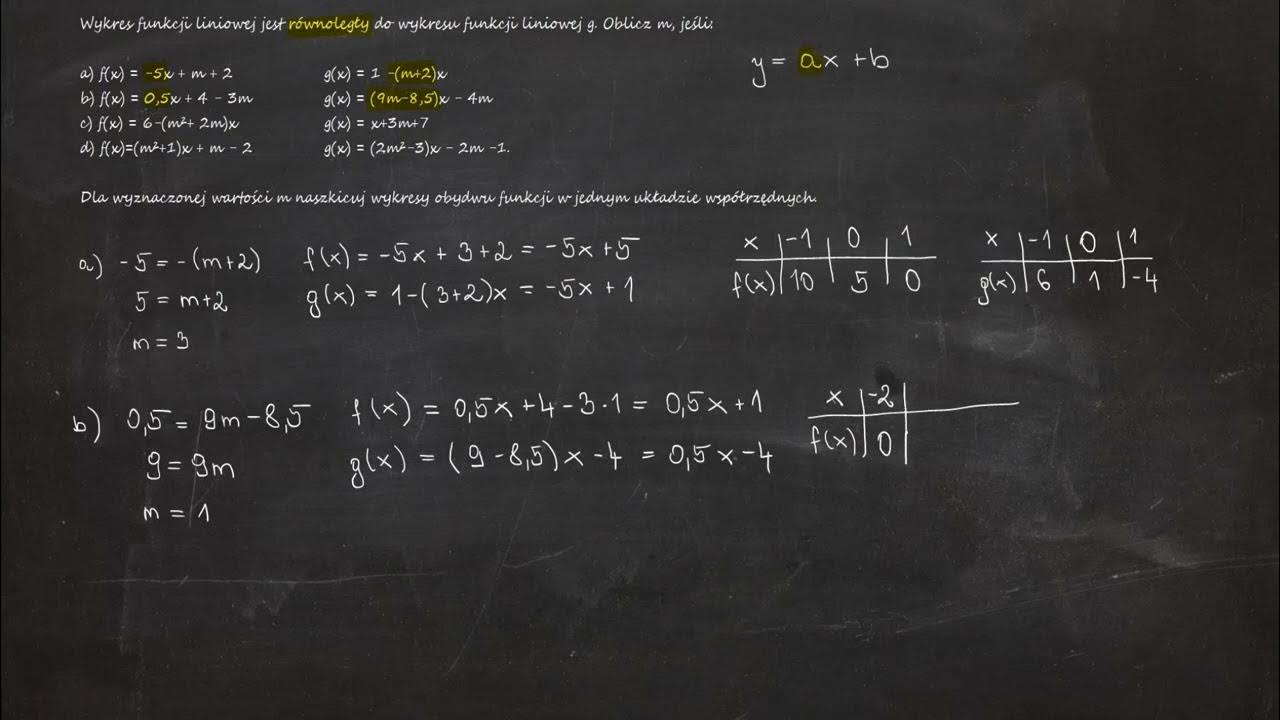 Wykres funkcji liniowej jest równoległy do wykresu funkcji liniowej g. Oblicz m, jeśli:
y = ax + b
a) f(x) = -5x + m + 2 g(x) = 1 -(m+2)x
b) f(x) = 0,5x + 4 - 3m g(x) = (9m-8,5)x - 4m
c) f(x) = 6-(m²+ 2m)x g(x) = x+3m+7
d) f(x)=(m²+1)x + m - 2 g(x) = (2m²-3)x - 2m -1.
Dla wyznaczonej wartości m naszkicuj wykresy obydwu funkcji w jednym układzie współrzędnych.
a) -5 = -(m+2) f(x) = -5x + 3+2 = -5x+5
5 = m+2 g(x) = 1-(3+2)x = -5x + 1
m = 3
x -1 0 1
f(x) 10 5 0
x -1 0 1
g(x) 6 1 -4
b) 0,5 = 9m-8,5 f(x) = 0,5x+4-3·1 = 0,5x+1
9 = 9m g(x) = (9-8,5)x-4 = 0,5x-4
m = 1
x -2
f(x) 0